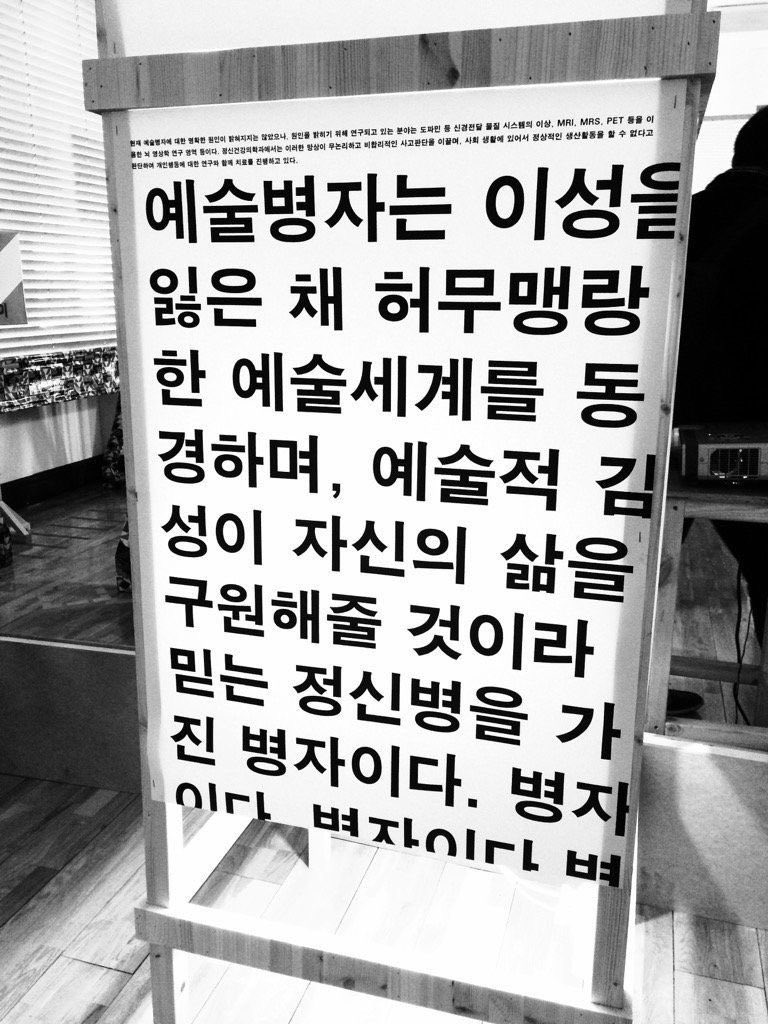 현재 예술병자에 대한 명확한 원인이 밝혀지지는 않았으나, 원인을 밝히기 위해 연구되고 있는 분야는 도파민 등 신경전달 물질 시스템의 이상, MRI, MRS, PET 등을 이
용한 뇌 영상학 연구 영역 등이다. 정신건강의학과에서는 이러한 망상이 무논리하고 비합리적인 사고판단을 이끌며, 사회 생활에 있어서 정상적인 생산활동을 할 수 없다고
판단하며 개인행동에 대한 연구와 함께 치료를 진행하고 있다.
예술병자는 이성을
잃은 채 허무맹랑
한 예술세계를 동
경하며, 예술적 김
성이 자신의 삶을
구원해줄 것이라
믿는 정신병을 가
진 병자이다. 병자
이다. 병자이다 병